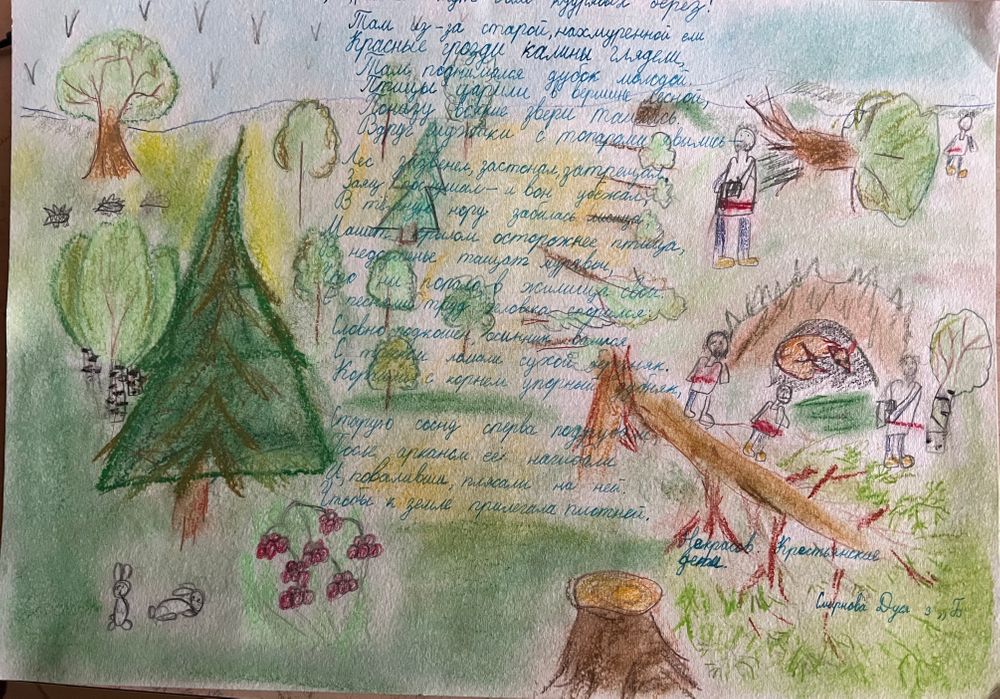 кудрявых берез!
Там из-за старой, нахмуренной ели
Красные грозди калины глядели,
Там поднимался дубок молодой.
Птицы царили в вершине лесной,
Понизу всякие звери таились.
Вдруг мужики с топорами явились —
Лес зазвенел, застонал, затрещал.
Заяц послушал — и вон убежал,
В темную нору забилась лисица,
Машет крылом осторожнее птица,
В недоуменье тащат муравьи,
Что ни попало в жилища свои.
С песнями труд человека спорился:
Словно подкошен, осинник валился,
С треском ломали сухой березняк.
Корчили с корнем упорный дубняк,
Старую сосну сперва подрубали
После арканом ее нагибали
И, поваливши, плясали на ней.
Чтобы к земле прилегала плотней.
Некрасов Крестьянские
дети
Смирнова Дуся 3 „Б